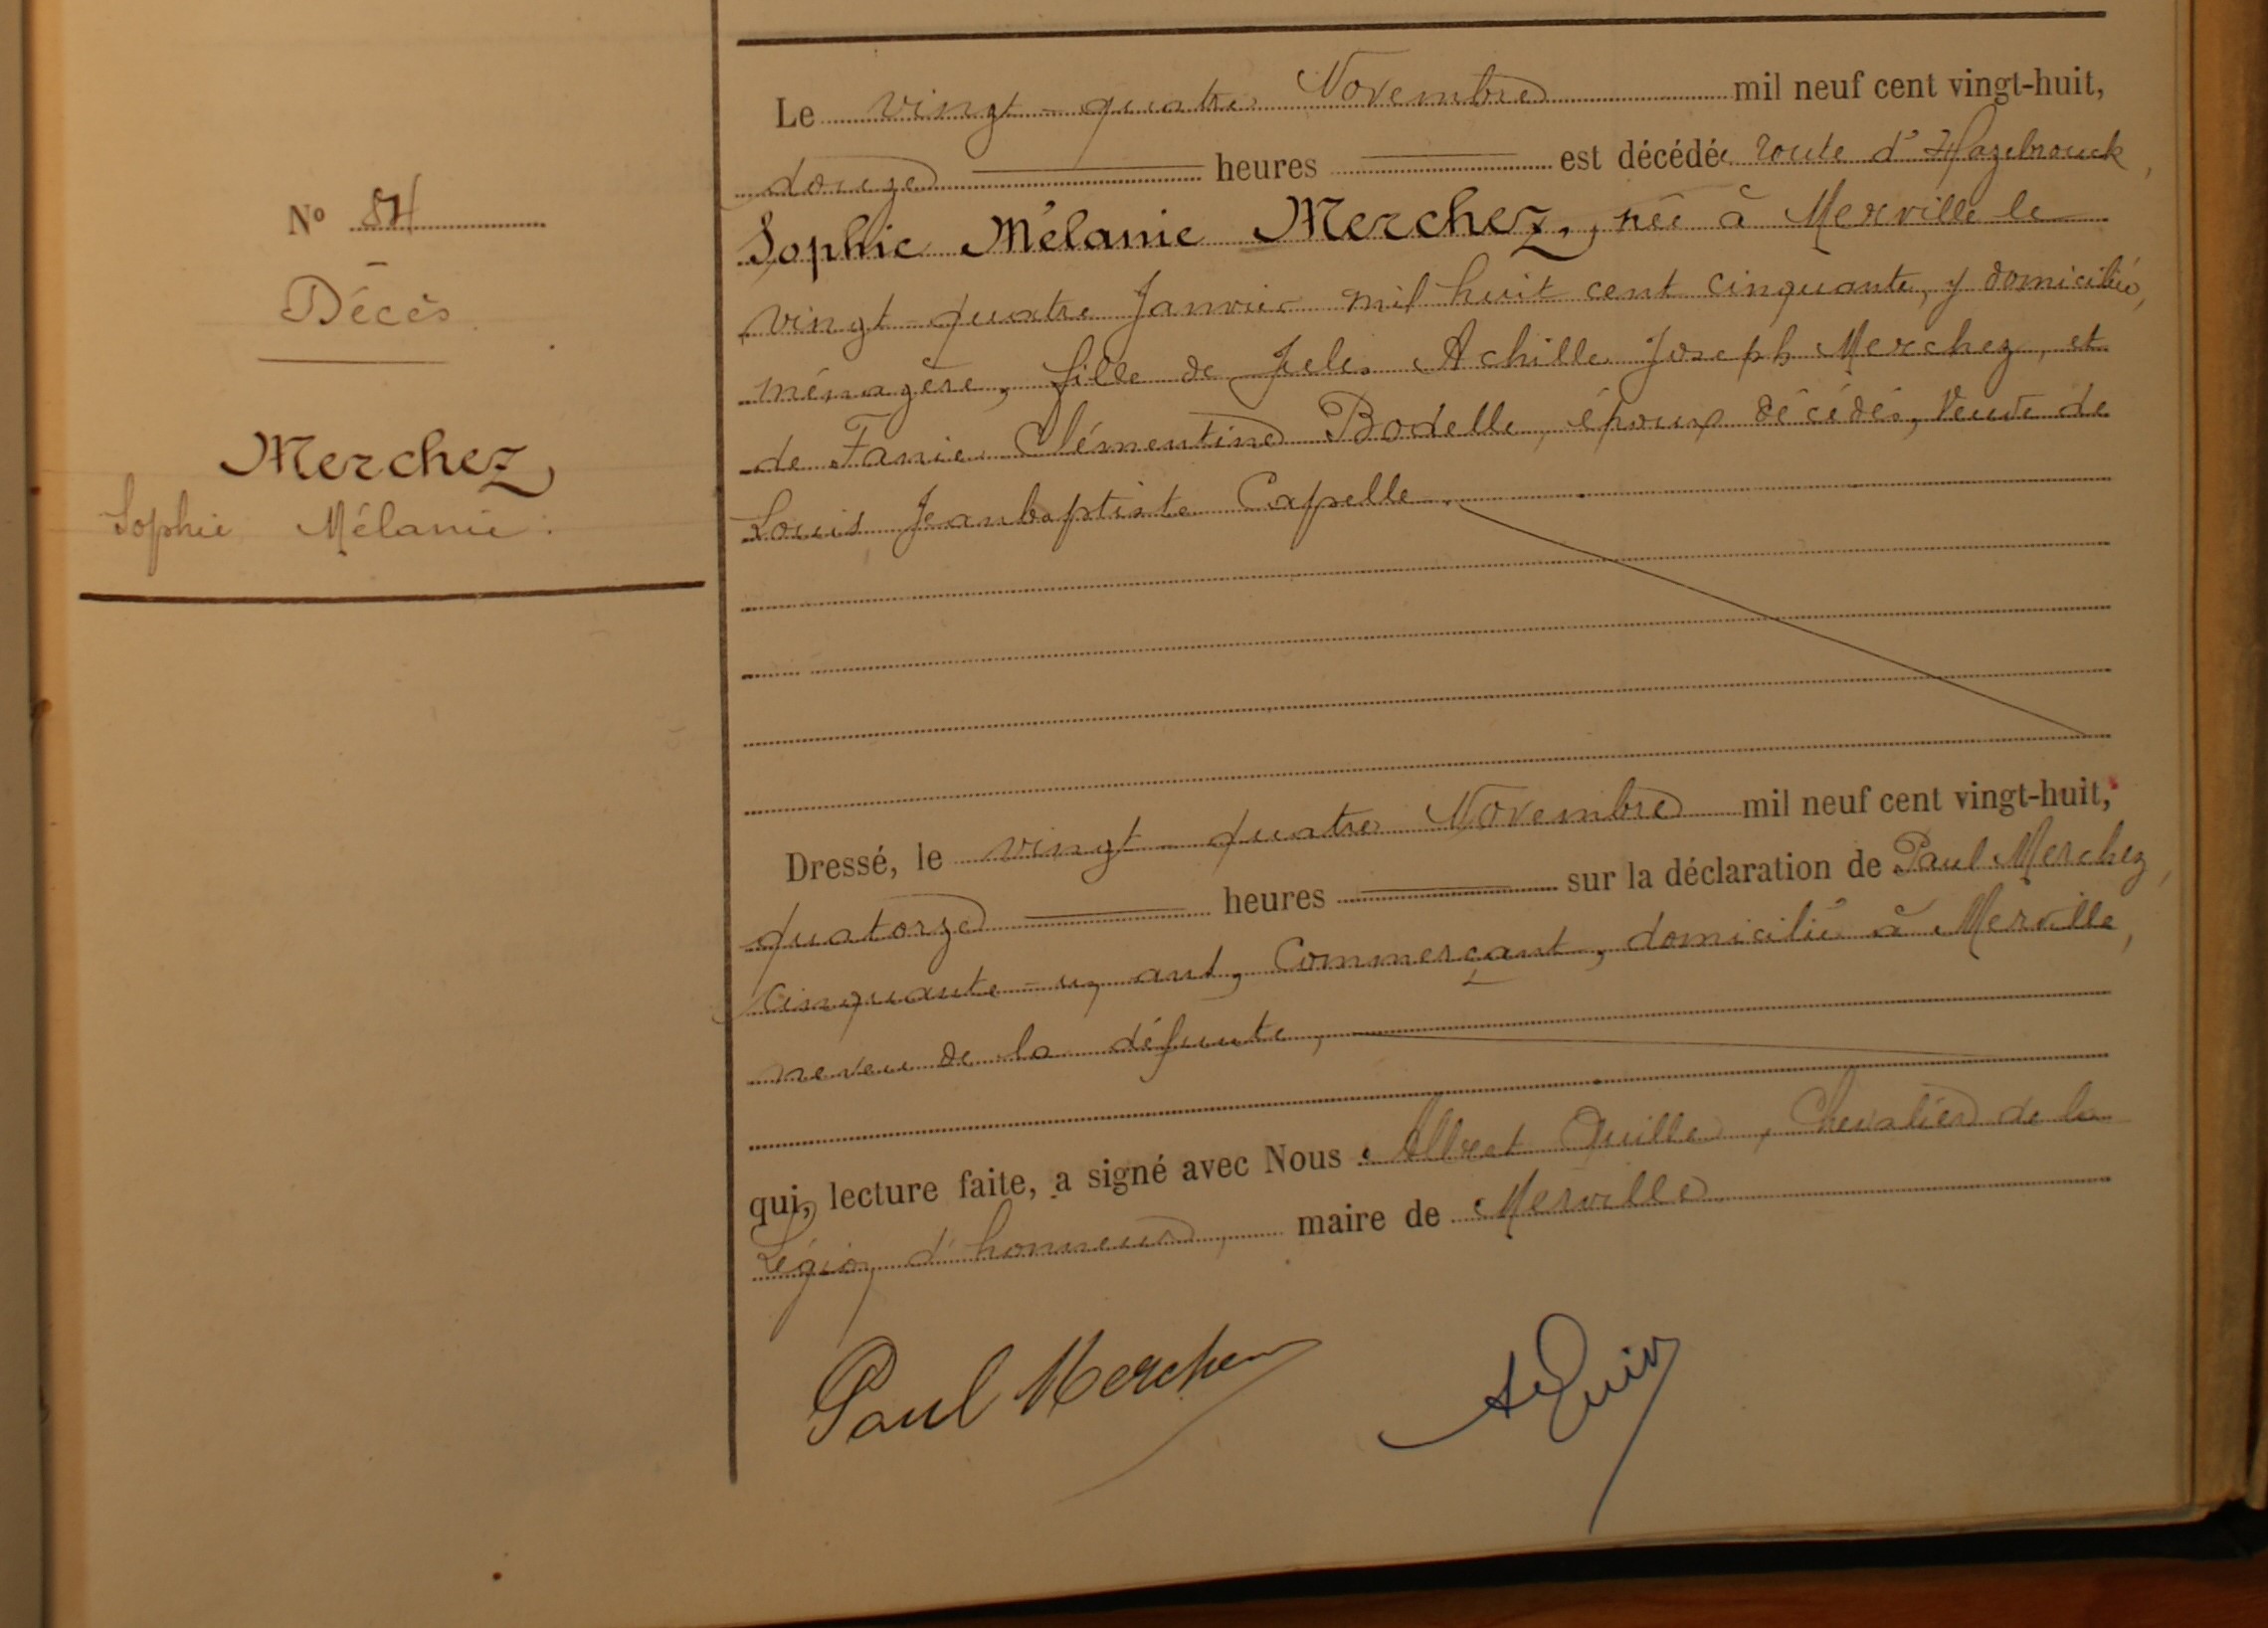 N° 84
Décès
Merchez
Sophie Mélanie.
Le vingt-quatre Novembre mil neuf cent vingt-huit,
douze heures est décédée route d'Hazebrouck,
Sophie Mélanie Merchez, née à Merville le
vingt-quatre Janvier mil huit cent cinquante, y domiciliée,
ménagère, fille de Jules Achille Joseph Merchez, et
de Fanie Clémentine Bodelle, époux décédés, Veuve de
Louis Jeanbaptiste Capelle.
Dressé, le vingt-quatre Novembre mil neuf cent vingt-huit,
quatorze heures sur la déclaration de Paul Merchez,
cinquante-un ans, Commerçant, domicilié à Merville,
neveu de la défunte,
qui, lecture faite, a signé avec Nous Albert Quille, Chevalier de la
Légion d'honneur, maire de Merville
Paul Merchez